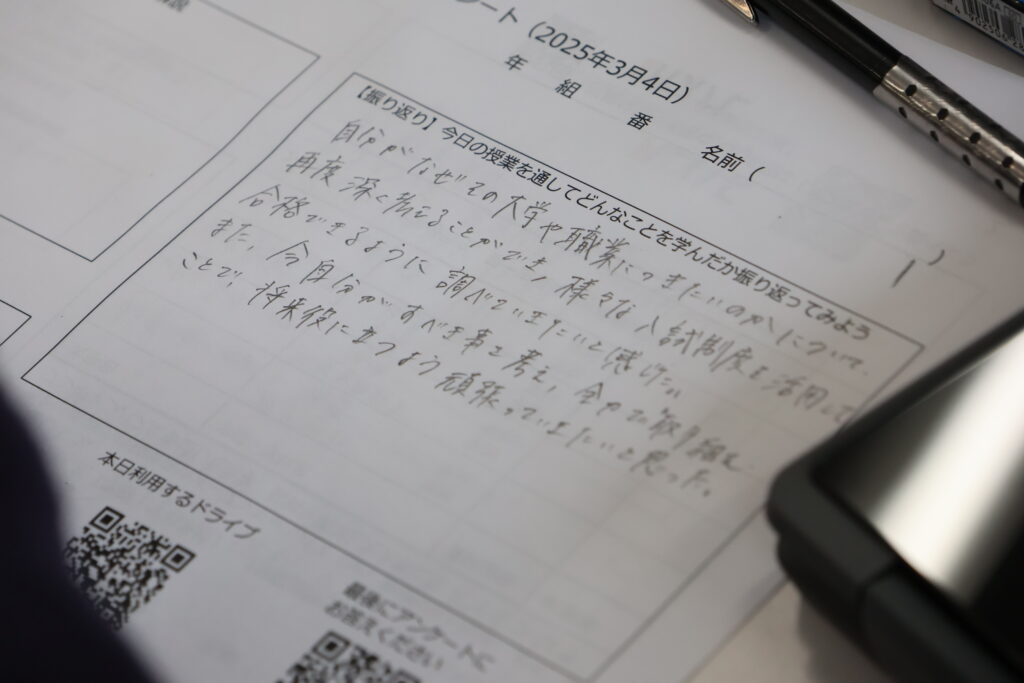 ート（2025年3月4日）
年 組 番 名前（ ）
【振り返り】今日の授業を通してどんなことを学んだか振り返ってみよう
自分がなぜその大学や職業につきたいのかについて、
再度深く考えることができ、様々な入試制度を活用して
合格できるように調べていきたいと感じた。
また、今自分がすべき事を考え、全力で取り組む
ことで、将来役に立つよう頑張っていきたいと思った。
本日利用するドライブ
最後にアンケートに
お答えください